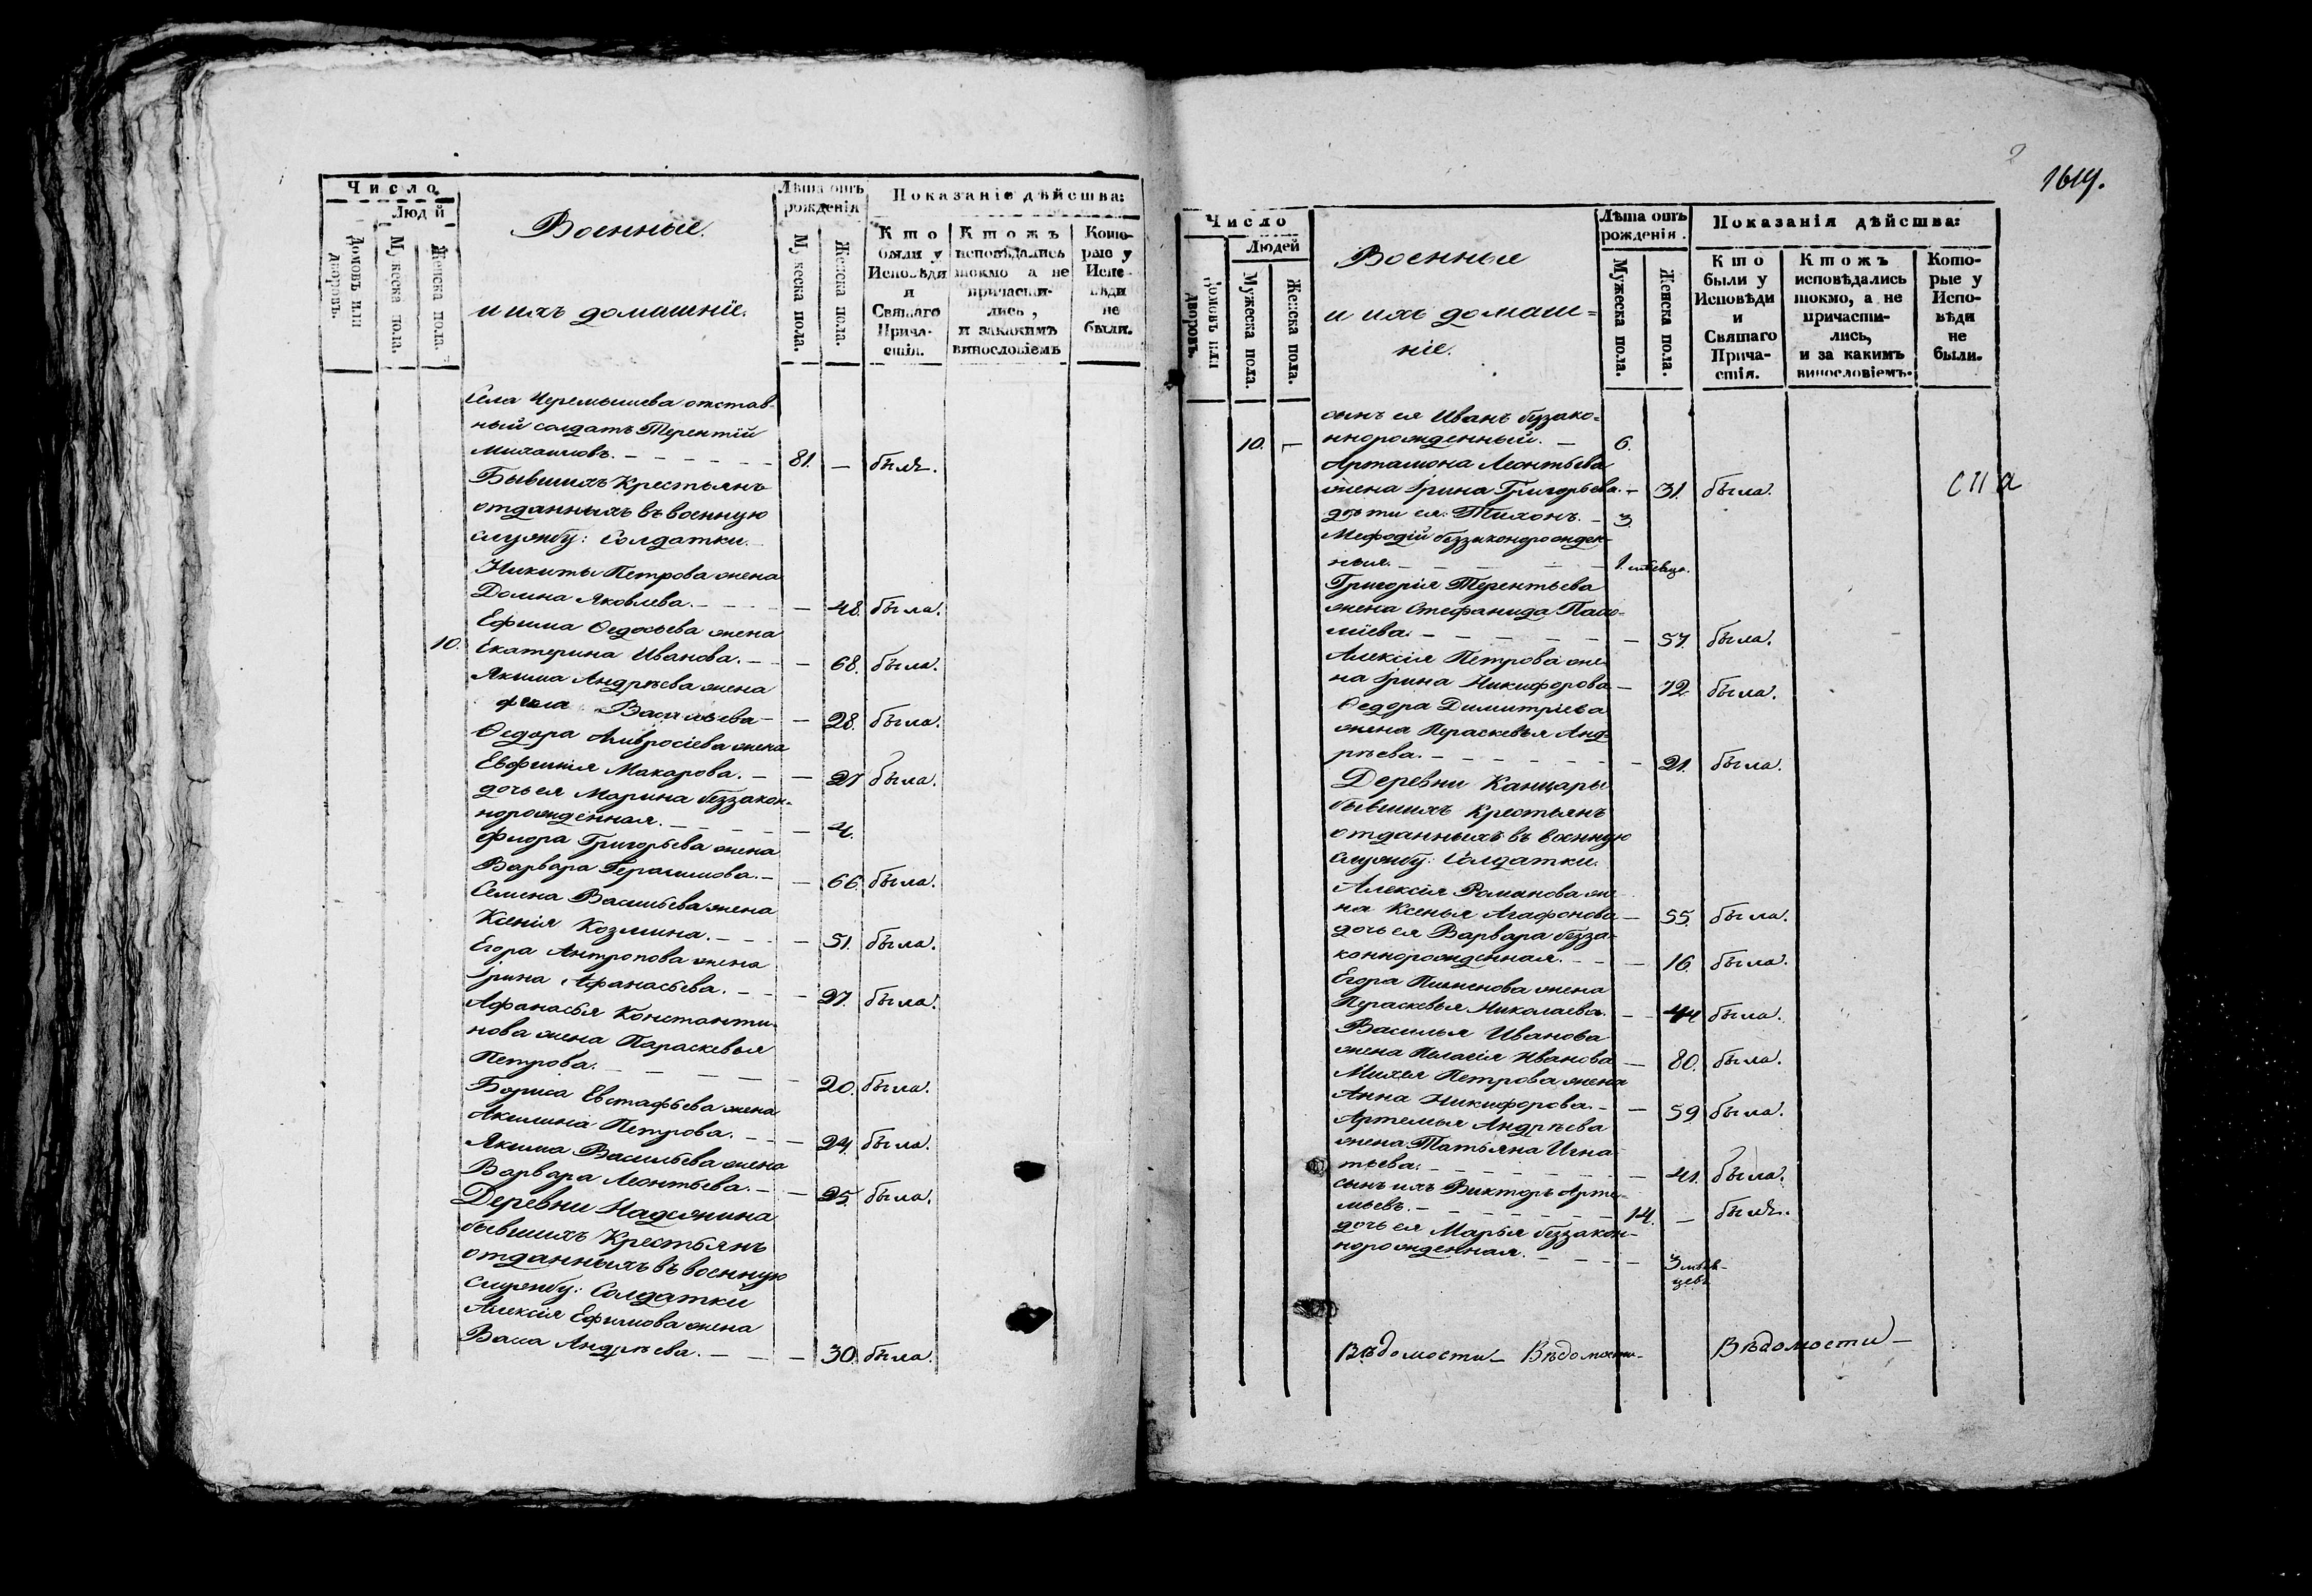 Число
Людей
Домовъ или дворовъ.
Мужеска пола.
Женска пола.
Военные
и ихъ домашніе.
Лѣта отъ рожденія
Мужеска пола.
Женска пола.
Показаніе дѣйства:
Кто были у Исповѣди и Святаго Прича-стія.
Ктожъ исповѣдались токмо а не причасти-лись, и закакимъ винословіемъ
Кото-рые у Испо-вѣди не были.
Села Черемышева отстав-
ный солдатъ Терентій
Михаиловъ. 81. — былъ.
Бывшихъ Крестьянъ
отданныхъ въ военную
службу: Солдатки.
Никиты Петрова жена
Домна Яковлева. — 48. была.
Ефима Ѳедосьева жена
10. Екатерина Иванова. — 68. была.
Якима Андрѣева жена
Фекла Васильева — 28. была.
Ѳедора Амвросіева жена
Евфимія Макарова. — 27 была.
дочь ея Марина беззакон-
норожденная. — 4.
Флора Григорьева жена
Варвара Герасимова. — 66. была.
Семена Васильева жена
Ксенія Козмина. — 51. была.
Егора Антропова жена
Ірина Афанасьева. — 27. была.
Афанасья Константи-
нова жена Параскевья
Петрова. — 20. была.
Бориса Евстафьева жена
Акилина Петрова. — 24. была.
Якима Васильева жена
Варвара Леонтьева. — 25. была.
Деревни Надежина
бывшихъ Крестьянъ
отданныхъ въ военную
службу: Солдатки
Алексія Ефимова жена
Васа Андрѣева. — 30. была.
2
1614.
Число
Людей
Домовъ или дворовъ.
Мужеска пола.
Женска пола.
Военные
и ихъ домаш-
ніе.
Лѣта отъ рожденія.
Мужеска пола.
Женска пола.
Показанія дѣйства:
Кто были у Исповѣди и Святаго Прича-стія.
Ктожъ исповѣдались токмо, а не причасти-лись, и за какимъ винословіемъ.
Кото-рые у Испо-вѣди не были.
сынъ ея Иванъ беззако-
10. — ннорожденный. — 6.
Артамона Леонтьева
жена Ірина Григорьева. — 31. была.
дѣти ея: Тихонъ. — 3.
Мефодій беззаконорожден-
ныя. 1. мѣсяцъ.
Григорія Терентьева
жена Стефанида Пав-
лиева. — 57. была.
Алексія Петрова же-
на Ірина Никифорова — 72. была.
Ѳедора Димитріева
жена Параскевья Анд-
рѣева. — 21. была.
Деревни Канцары
бывшихъ Крестьянъ
отданныхъ въ военную
службу: Солдатки.
Алексія Романова же-
на Ксенья Агафонова — 55. была.
дочь ея Варвара безза-
коннорожденная. — 16. была.
Егора Пименова жена
Параскевья Николаева. — 44 была.
Василья Иванова
жена Пелагія Иванова — 80. была.
Михея Петрова жена
Анна Никифорова. — 59 была.
Артемья Андрѣева
жена Татьяна Игна-
тьева. — 41. была.
сынъ ихъ Викторъ Арте-
мьевъ. 14. — былъ.
дочь ея Марья беззакон-
норожденная. — 3 мѣся-
цевъ
Вѣдомости — Вѣдомости — Вѣдомости —